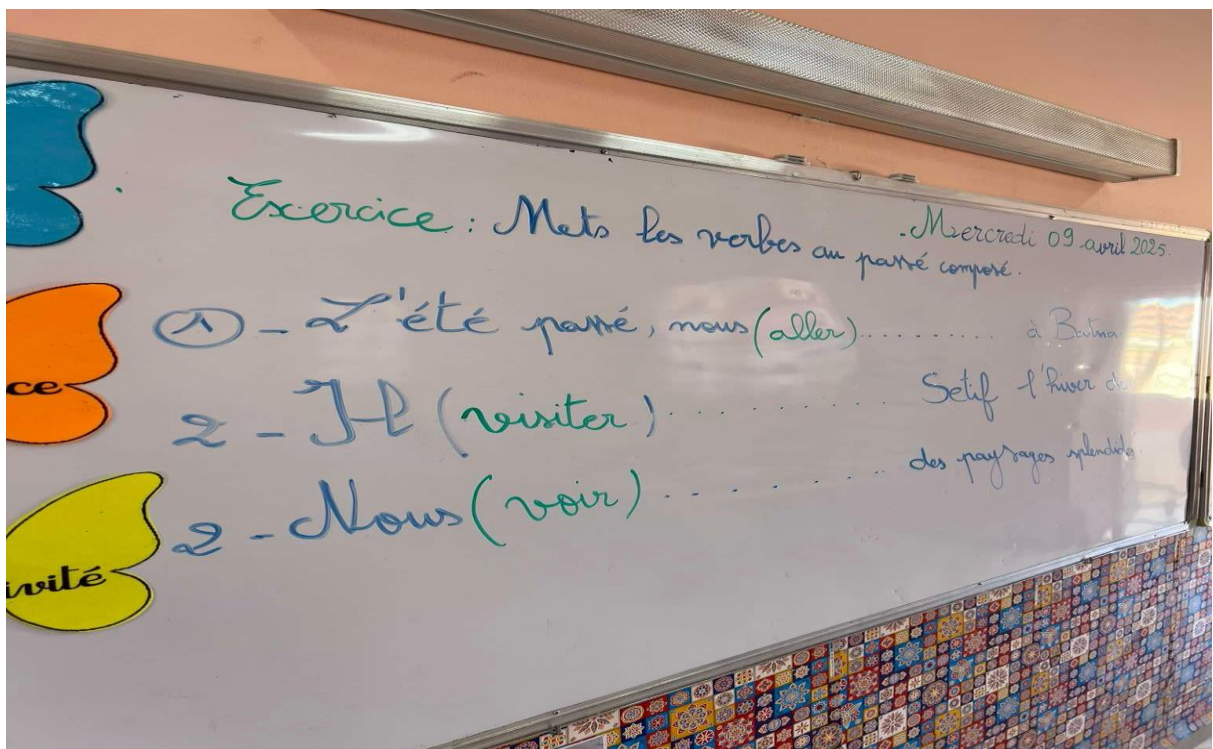 Mercredi 09 avril 2025.
Exercice : Mets les verbes au passé composé.
1 - L'été passé, nous (aller) .......... à Batna
2 - Il (visiter) .......... Setif l'hiver de
2 - Nous (voir) .......... des paysages splendides.
ce
ivité